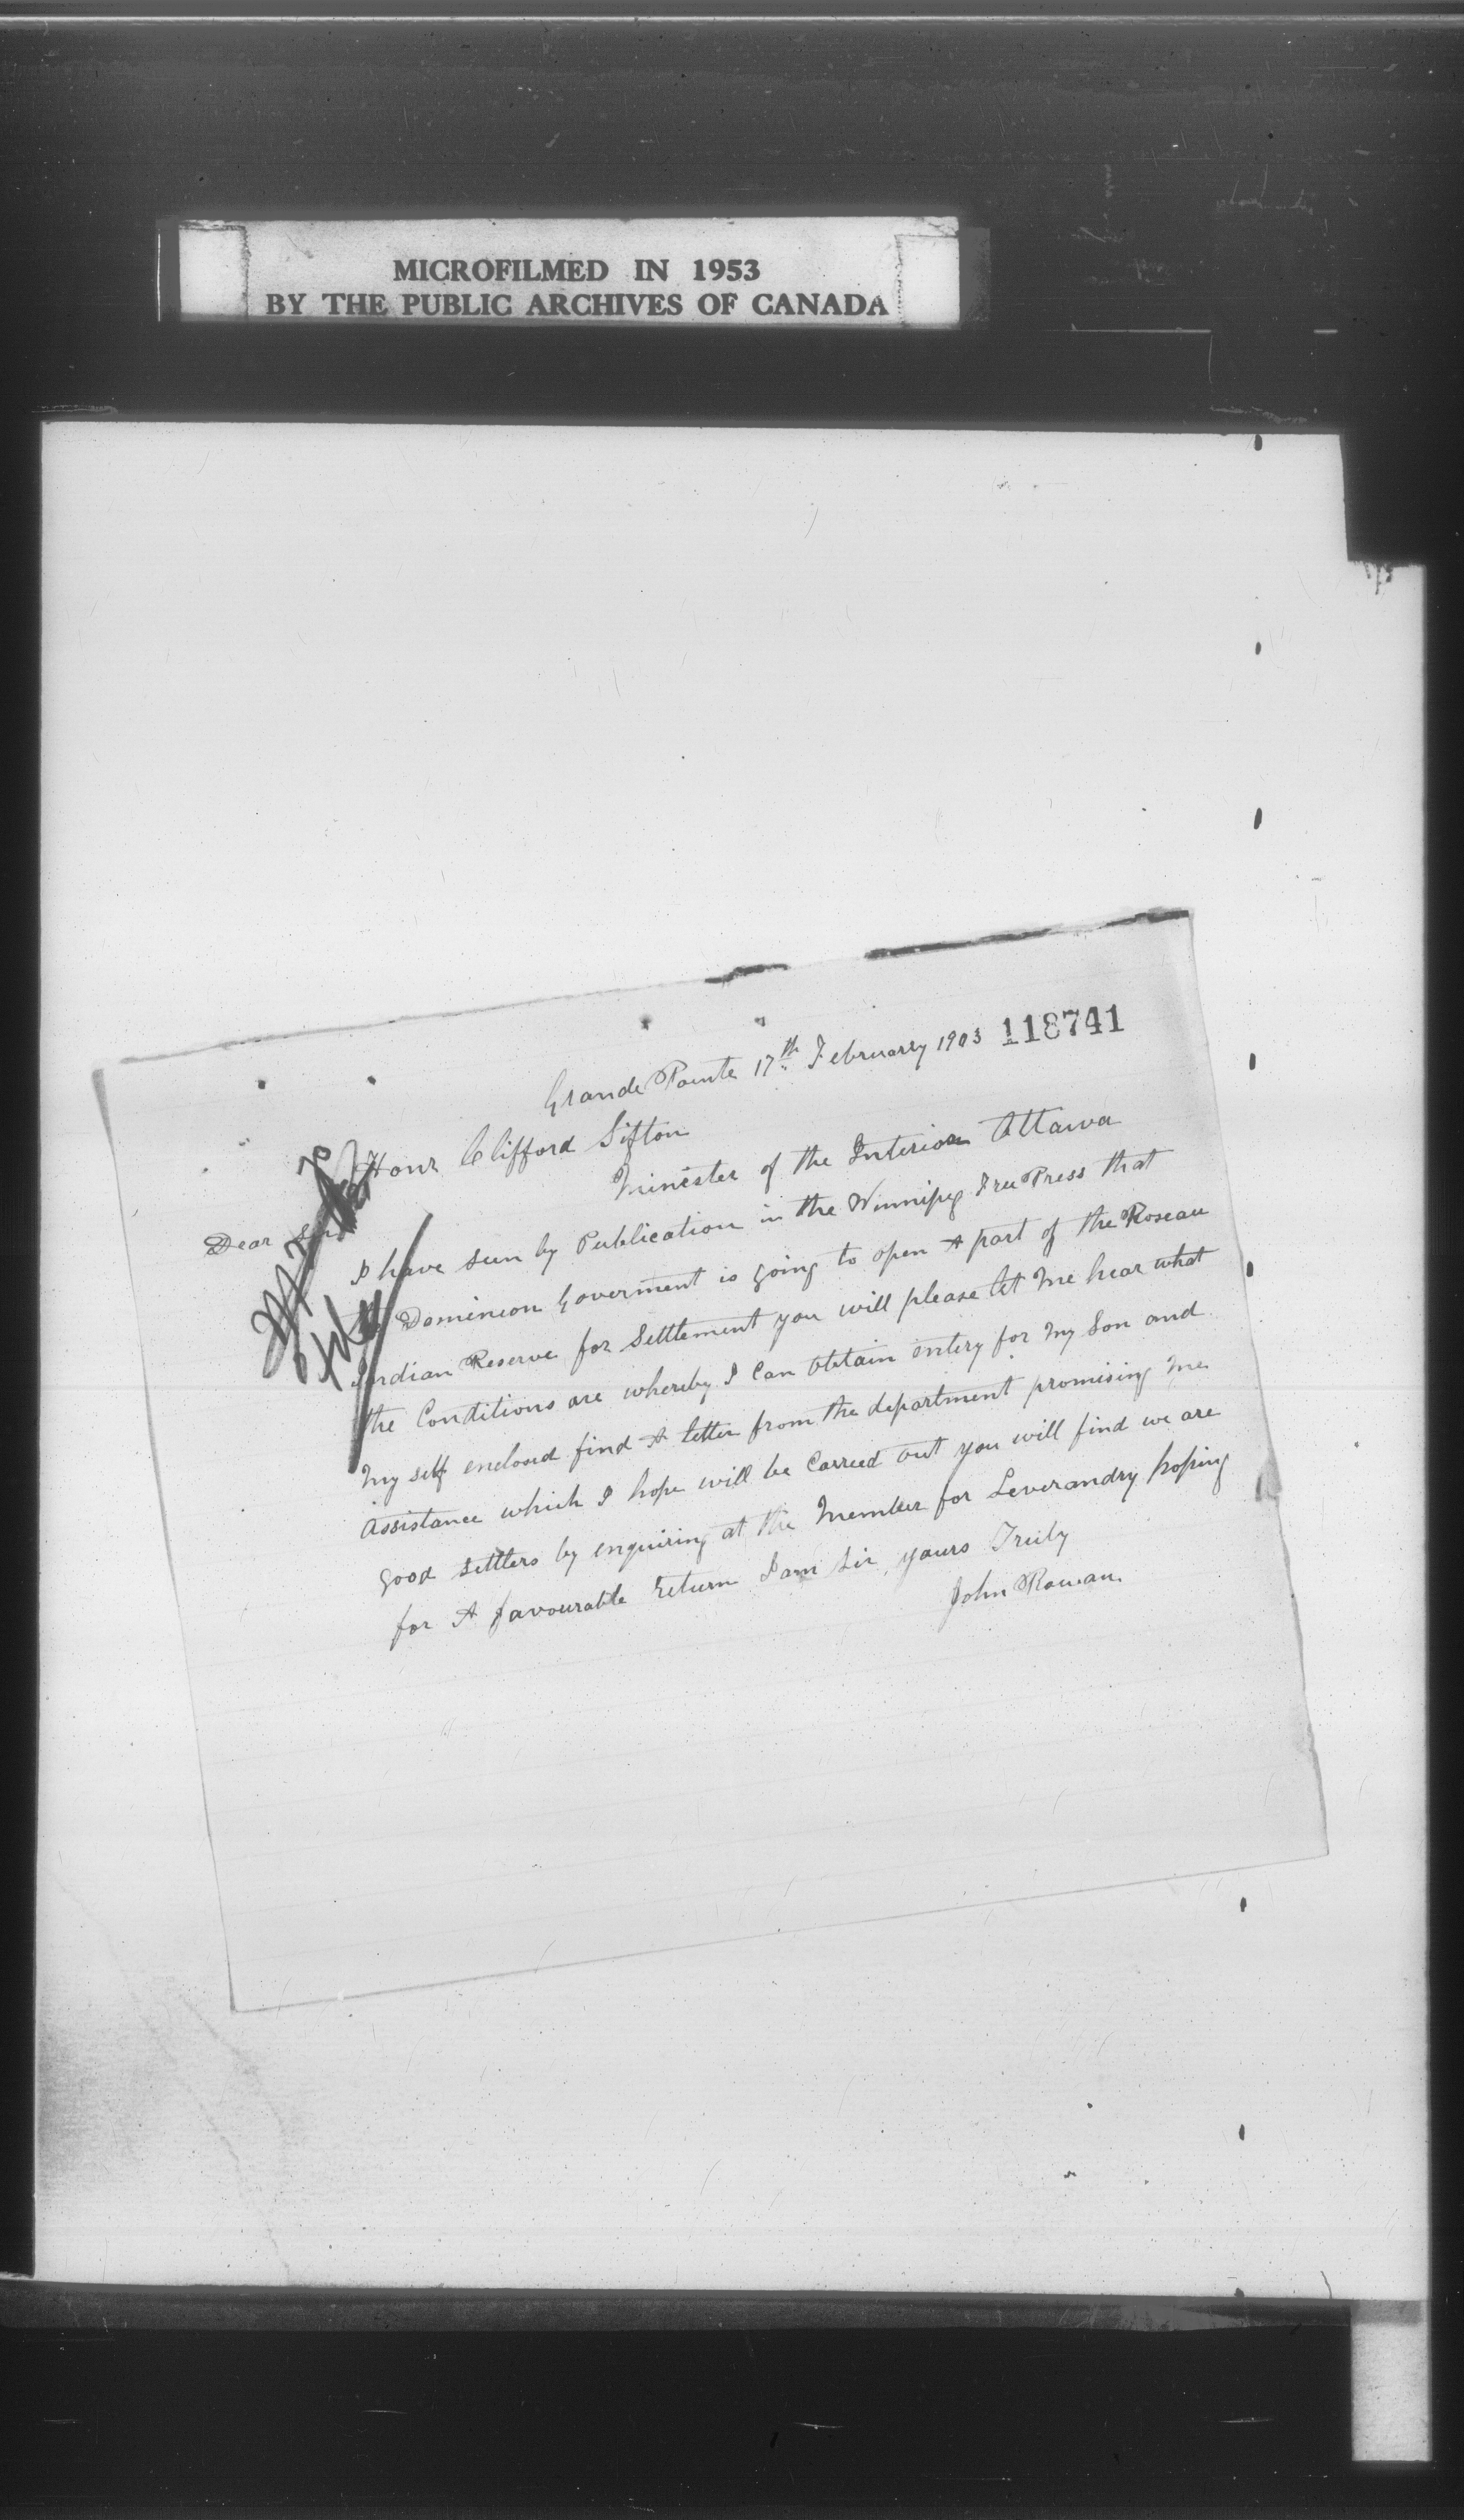 MICROFILMED IN 1953
BY THE PUBLIC ARCHIVES OF CANADA
118741
Grande Pointe 17th February 1903
Honr Clifford Sifton
Minister of the Interior Ottawa
Dear Sir
I have seen by Publication in the Winnipeg Free Press that
the Dominion Goverment is going to open A part of the Roseau
Indian Reserve for Settlement you will please let me hear what
the Conditions are whereby I Can Obtain entery for my Son and
my self enclosed find A letter from the department promising me
Assistance which I hope will be Carried out you will find we are
good settlers by enquiring at the Member for Leverandry hoping
for A favourable return I am Sir yours Truly
John Rowan.